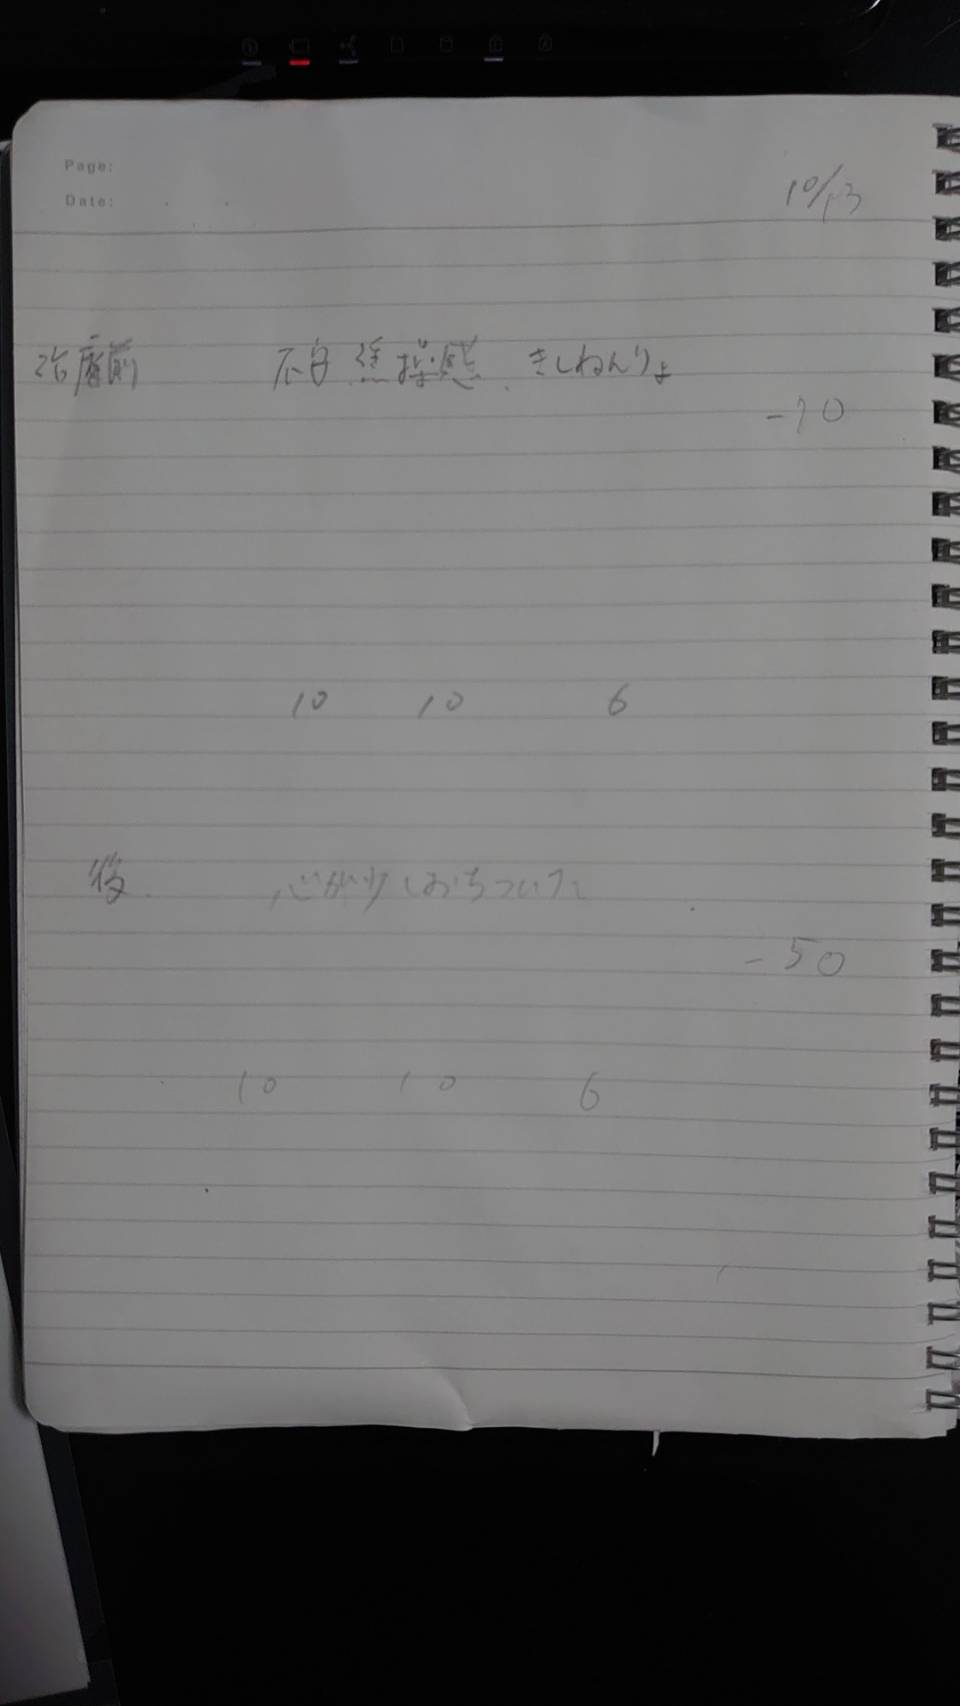 Page:
Date:
10/13
治療前 不安 焦操感 きしねんりょ
-70
10 10 6
後 心が少しおちついた
-50
10 10 6